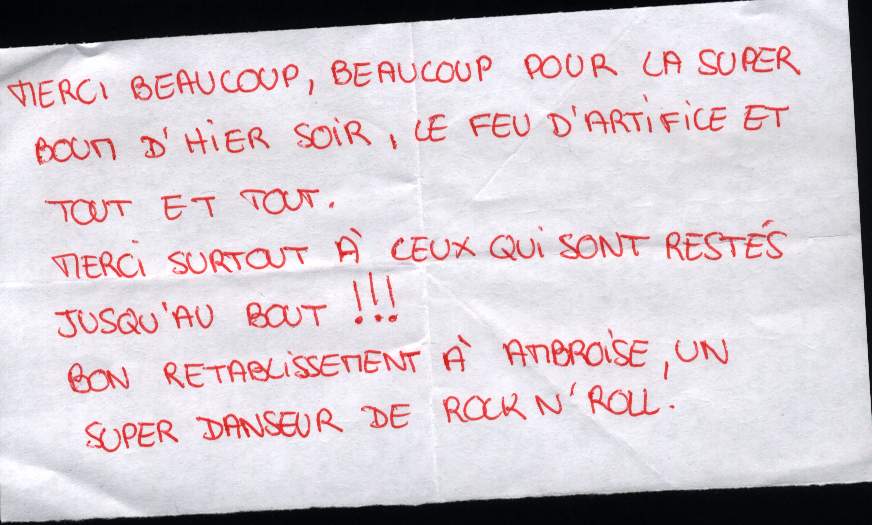 MERCI BEAUCOUP, BEAUCOUP POUR LA SUPER
BOUM D'HIER SOIR, LE FEU D'ARTIFICE ET
TOUT ET TOUT.
MERCI SURTOUT À CEUX QUI SONT RESTÉS
JUSQU'AU BOUT !!!
BON RETABLISSEMENT À AMBROISE, UN
SUPER DANSEUR DE ROCK N' ROLL.